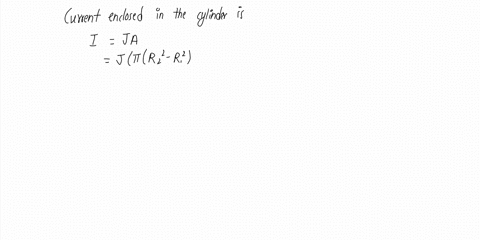 Current enclosed in the cylinder is
I = JA
= J(π(R₂² - R₁²)